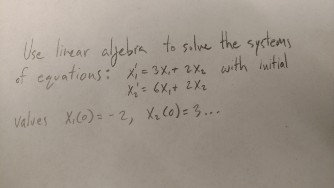 Use linear algebra to solve the systems
of equations: x₁' = 3x₁ + 2x₂ with initial
x₂' = 6x₁ + 2x₂
values x₁(0) = -2, x₂(0) = 3...